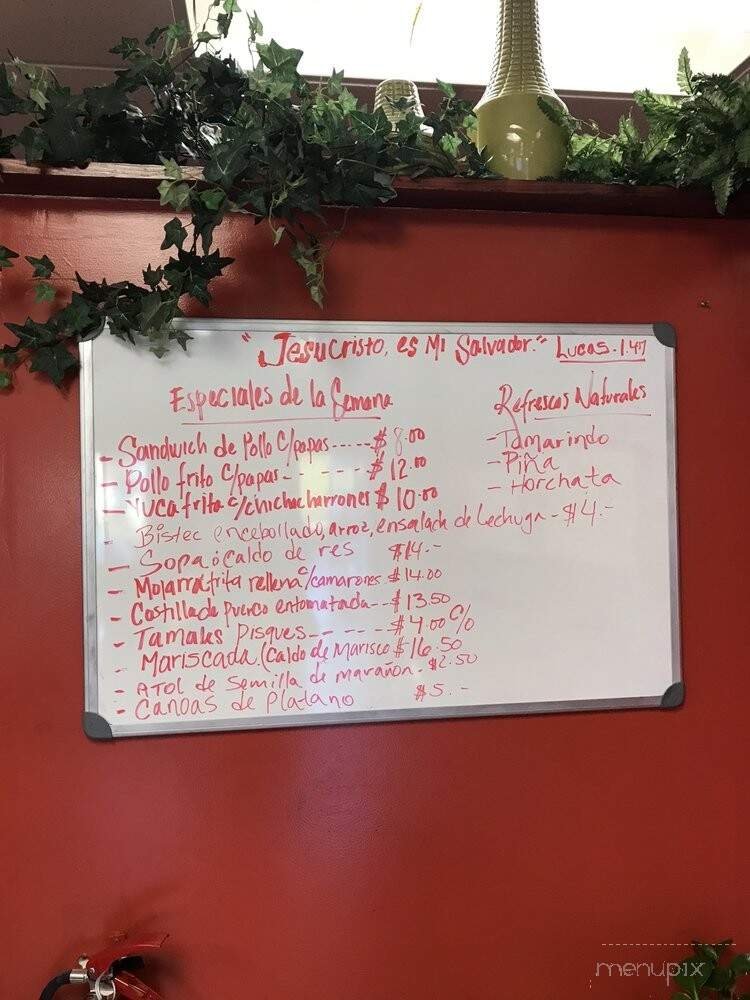 "Jesucristo, es Mi Salvador." Lucas. 1.47
Especiales de la Semana
- Sandwich de Pollo c/papas ----- $ 8.00
- Pollo frito c/papas - - - - - $ 12.00
- Yuca frita c/chichacharrones $ 10.00
- Bistec encebollado, arroz, ensalada de Lechuga - $14.-
- Sopa ó caldo de res $14.-
- Mojarra frita rellena c/camarones $14.00
- Costilla de puerco entomatada -- $13.50
- Tamales Pisques -- - - - $4.00 c/o
- Mariscada. (Caldo de Marisco $16.50
- ATol de semilla de marañon - $2.50
- Canoas de Platano $5.-
Refrescos Naturales
- Tamarindo
- Piña
- Horchata
menupix